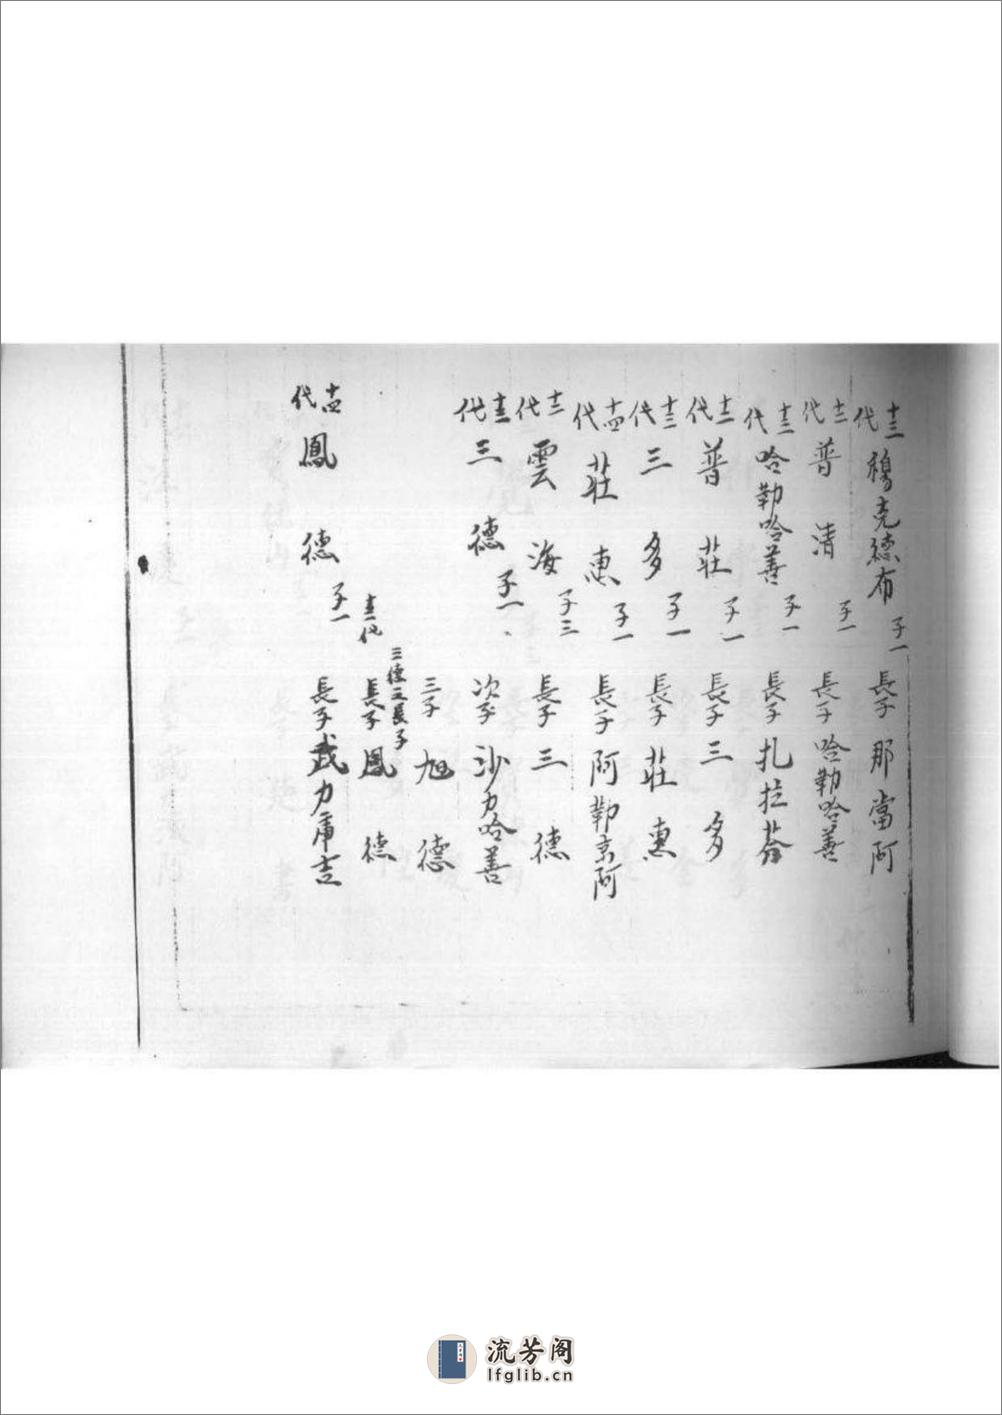 十三代 穆克德布 子一 長子 那當阿
十二代 普清 子一 長子 哈勒哈善
十三代 哈勒哈善 子一 長子 扎拉芬
十二代 普莊 子一 長子 三多
十三代 三多 子一 長子 莊惠
十四代 莊惠 子一 長子 阿勒京阿
十二代 雲海 子三 長子 三德
十三代 三德 子一 次子 沙力哈善
三子 旭德
三德之長子
十三代 長子 鳳德
十四代 鳳德 子一 長子 武力庫吉
流芳阁
lfglib.cn